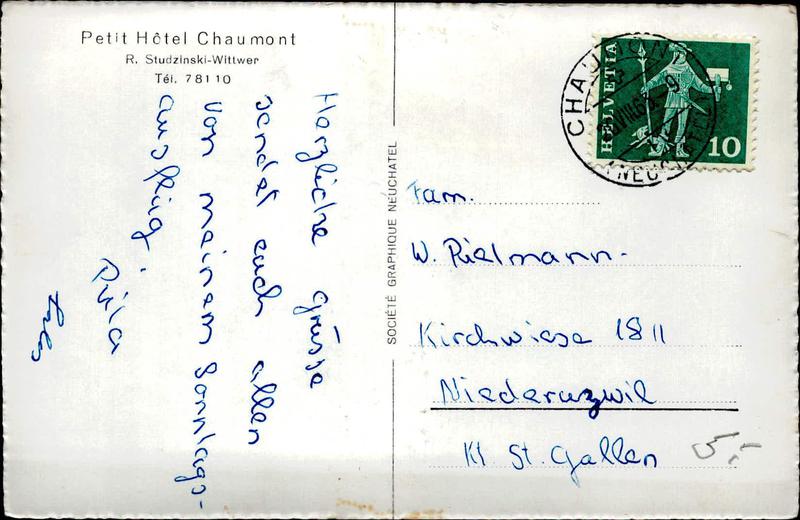 Petit Hôtel Chaumont
R. Studzinski-Wittwer
Tél. 7 81 10
Herzliche grüsse
sendet euch allen
von meinem Sonntags-
ausflug.
SOCIÉTÉ GRAPHIQUE NEUCHATEL
CHAUMONT
(NEUCHÂTEL)
HELVETIA
10
Fam.
W. Rielmann-
Kirchwiese 1811
Niederuzwil
Kt St. Gallen
5.-